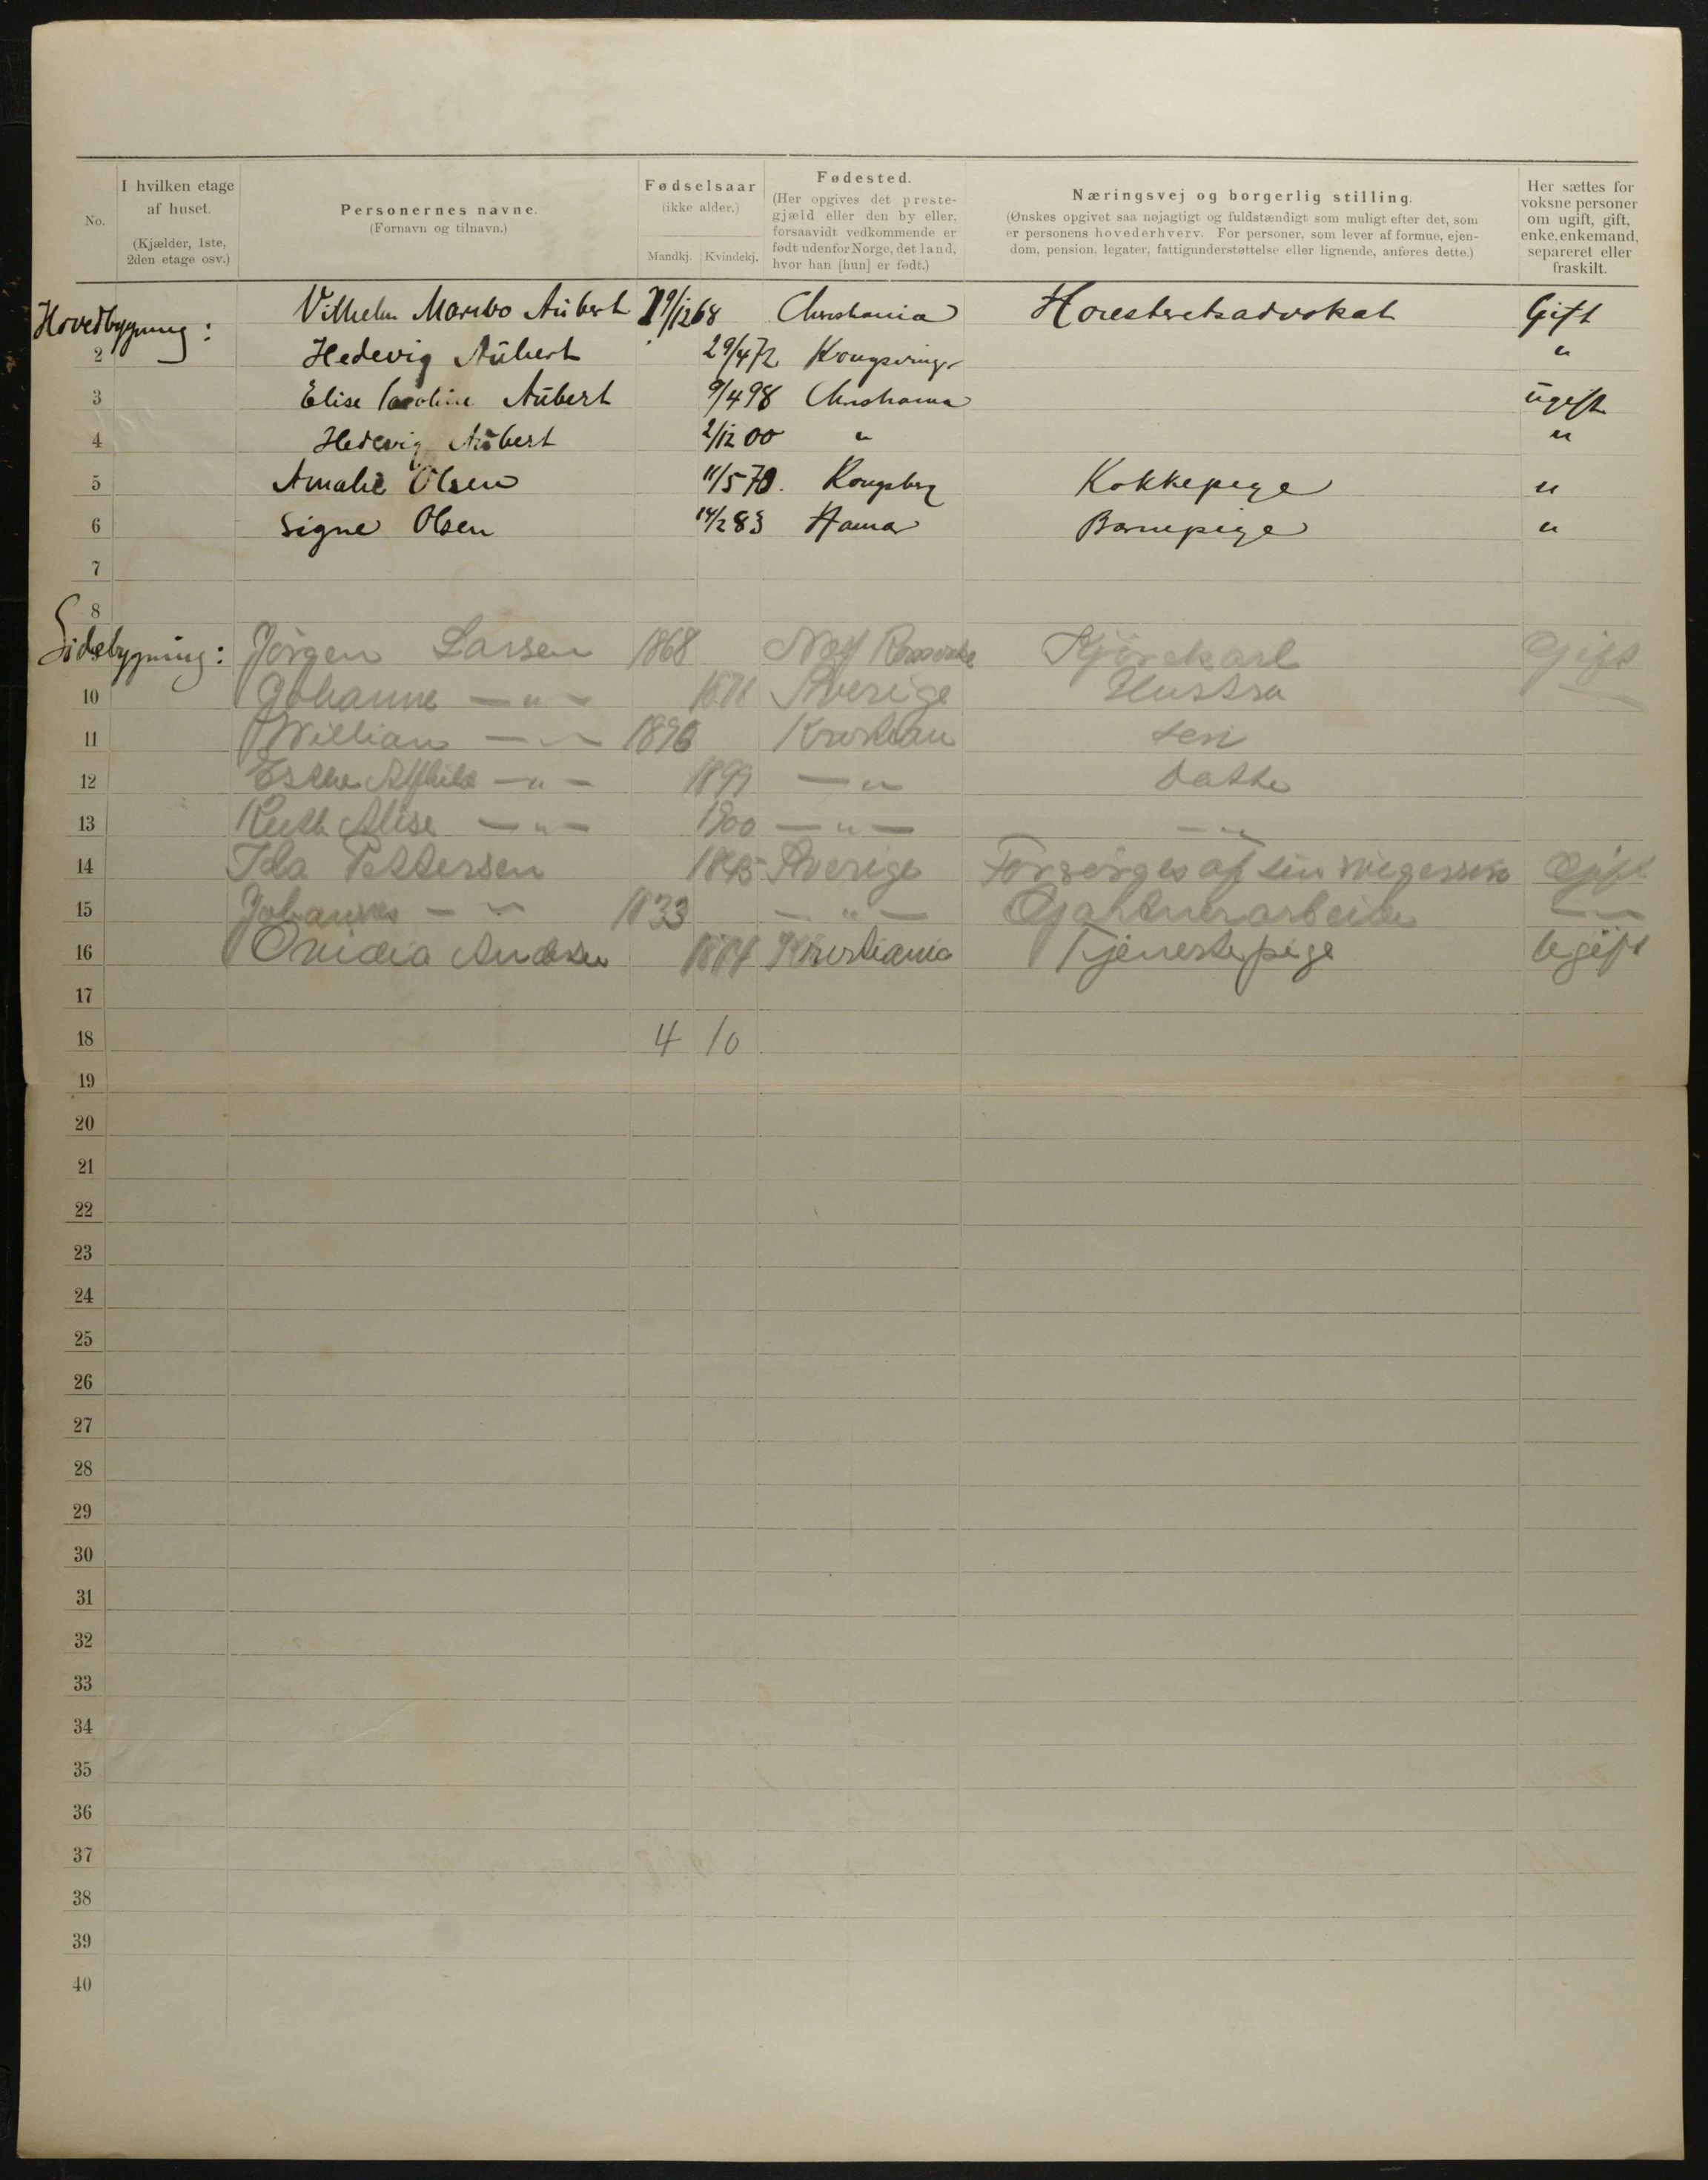 No.
I hvilken etage af huset.
(Kjælder, 1ste, 2den etage osv.)
Personernes navne.
(Fornavn og tilnavn.)
Fødselsaar
(ikke alder.)
Mandkj. Kvindekj.
Fødested.
(Her opgives det preste-
gjæld eller den by eller,
forsaavidt vedkommende er
født udenfor Norge, det land,
hvor han [hun] er født.)
Næringsvej og borgerlig stilling.
(Ønskes opgivet saa nøjagtigt og fuldstændigt som muligt efter det, som
er personens hovederhverv. For personer, som lever af formue, ejen-
dom, pension, legater, fattigunderstøttelse eller lignende, anføres dette.)
Her sættes for
voksne personer
om ugift, gift,
enke, enkemand,
separeret eller
fraskilt.
Hovedbygning: Vilhelm Maribo Aubert 19/12 68 Christiania Høiesteretsadvokat Gift
2 Hedevig Aubert 29/4 72 Kongsvinger "
3 Elise Caroline Aubert 9/4 98 Christiania ugift
4 Hedevig Aubert 2/12 00 " "
5 Amalie Olsen 11/5 70. Kongsberg Kokkepige "
6 Signe Olsen 14/2 83 Hamar Barnepige "
7
8
Sidebygning: Jørgen Larsen 1868 Kjørekarl Gift
10 Johanne — " — Sverige Hustru —
11 William — " — Kristian søn
12 — " — 1899 — " datter
13 Ruth Alise — " — 1900 — " — — " —
14 Ida Pettersen Sverige Forsørges af sin Gift
15 Johannes — " 1833 — " — Gartnerarbeider — " —
16 Andersen 1874 Kristiania Tjenestepige Ugift
17
18 4 10
19
20
21
22
23
24
25
26
27
28
29
30
31
32
33
34
35
36
37
38
39
40